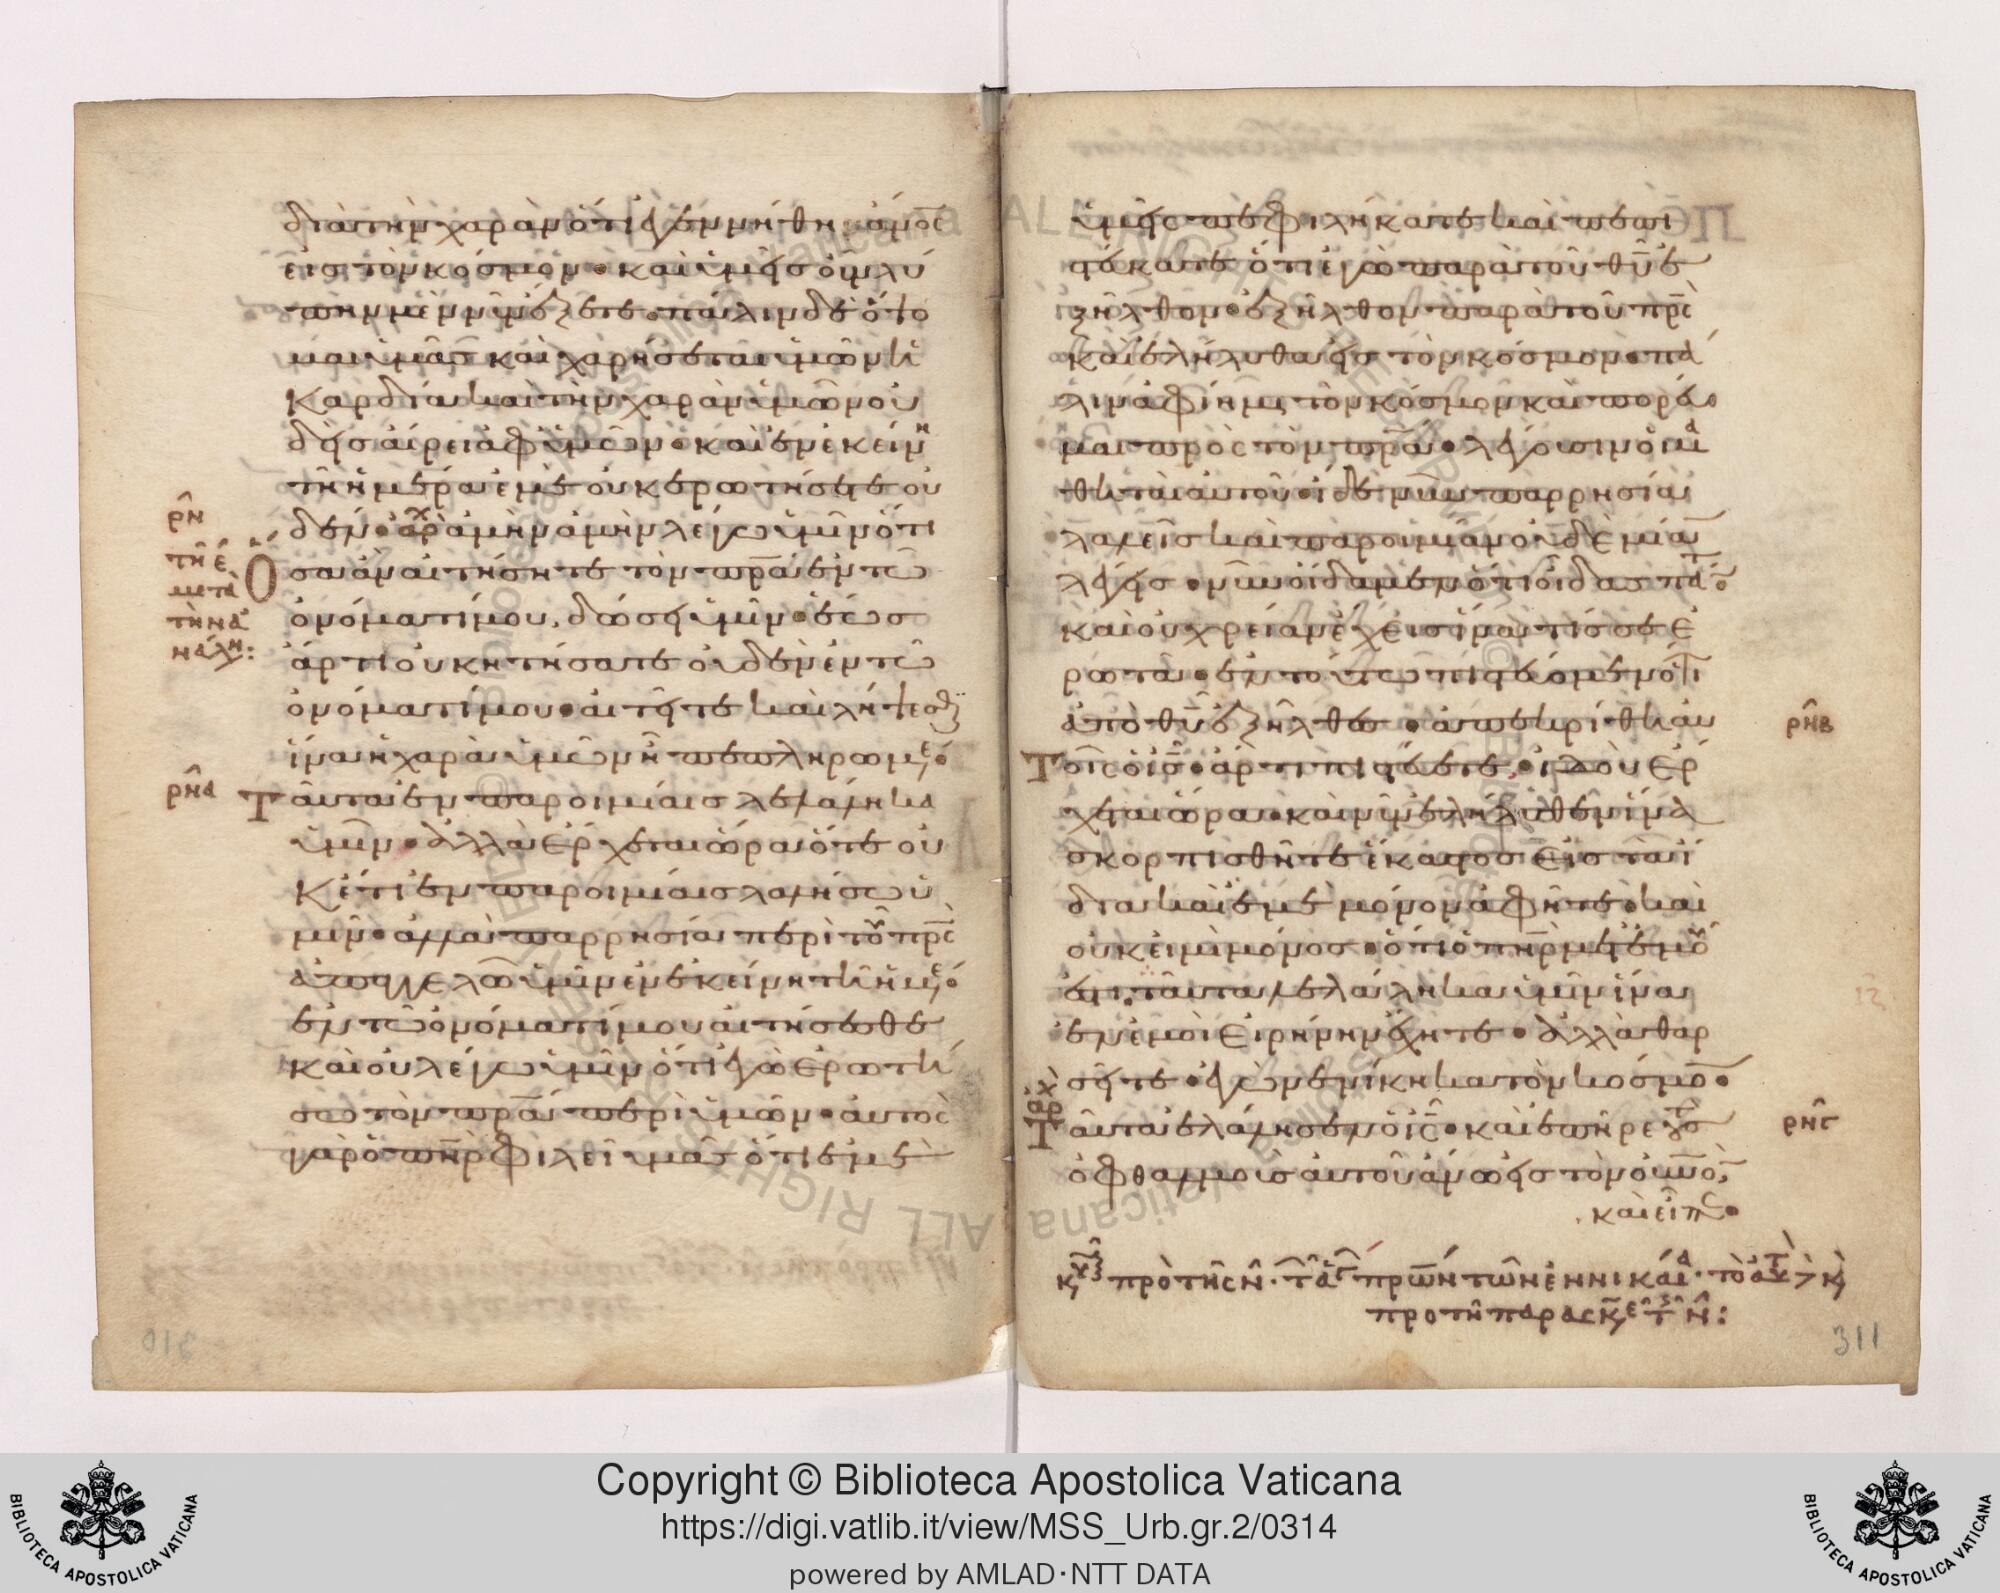 διὰ τὴν χαρὰν ὅτι ἐγεννήθη ἄνος
εἰς τὸν κόσμον· καὶ ὑμεῖς οὖν λύ
πην μὲν νῦν ἕξετε· πάλιν δὲ ὄψο
μαι ὑμᾶς καὶ χαρήσεται ὑμῶν ἡ
καρδία καὶ τὴν χαρὰν ὑμῶν οὐ
δεὶς αἴρει ἀφ ὑμῶν· καὶ ἐν ἐκείνη
τῆ ἡμέρα ἐμὲ οὐκ ἐρωτήσετε οὐ
δέν· ἀρχ ἀμὴν ἀμὴν λέγω ὑμῖν ὅτι
ὅσα ἂν αἰτήσητε τὸν πρα ἐν τῶ
ὀνόματί μου, δώσει ὑμῖν· ἕως
ἄρτι οὐκ ητήσατε οὐδὲν ἐν τῶ
ὀνόματί μου· αἰτεῖτε καὶ λήψεσθ
ἵνα ἡ χαρὰ ὑμῶν ῆ πεπληρωμέ
Ταῦτα ἐν παροιμίαις λελάληκα
ὑμῖν· ἀλλὰ ἔρχεται ὥρα ὅτε οὐ
κέτι ἐν παροιμίαις λαλήσω ὑ
μῖν· ἀλλὰ παρρησία περὶ τοῦ πρς
ἀπαγγελῶ ὑμῖν ἐν ἐκείνη τῆ ἡμέ
ἐν τῶ ὀνόματί μου αἰτήσεσθε
καὶ οὐ λέγω ὑμῖν ὅτι ἐγὼ ἐρωτή
σω τὸν πρα περὶ ὑμῶν· αὐτὸς
γὰρ ὁ πηρ φιλεῖ ὑμᾶς ὅτι ἐμὲ
ρν
τῆ ε
μετὰ
ρνα
ὑμεῖς πεφιλήκατε καὶ πεπι
στεύκατε ὅτι ἐγὼ παρὰ τοῦ θυ ἐ
ξῆλθον· ἐξῆλθον παρὰ τοῦ πρς
καὶ ἐλήλυθα εἰς τὸν κόσμον· πά
λιν ἀφίημι τὸν κόσμον καὶ πορεύ
μαι πρὸς τὸν πρα· λέγουσιν οἱ μα
θηταὶ αὐτοῦ· ἴδε νῦν παρρησία
λαλεῖς καὶ παροιμίαν οὐδὲ μίαν
λέγεις· νῦν οἴδαμεν ὅτι οἶδας πάτ
καὶ οὐ χρείαν ἔχεις ἵνα τίς σε ἐ
ρωτᾶ· ἐν τούτω πιστεύομεν ὅτι
ἀπὸ θυ ἐξῆλθες· ἀπεκρίθη αὐ
Τοῖς ὁ ις· ἄρτι πιστεύετε· ἰδοὺ ἔρ
χεται ὥρα· καὶ νῦν ἐλήλυθεν ἵνα
σκορπισθῆτε ἕκαστος εἰς τὰ ἴ
δια καὶ ἐμὲ μόνον ἀφῆτε· καὶ
οὐκ εἰμὶ μόνος· ὅτι ὁ πηρ μετ ἐμοῦ
ἐστι· ταῦτα λελάληκα ὑμῖν ἵνα
ἐν ἐμοὶ εἰρήνην ἔχητε· ἀλλὰ θαρ
σεῖτε· ἐγὼ νενίκηκα τὸν κόσμο
Ταῦτα ἐλάλησεν ὁ ις· καὶ ἐπῆρε τοὺς
ὀφθαλμοὺς αὐτοῦ ἄνω εἰς τὸν οὐνὸ
καὶ εἶπε
ρνβ
ρνγ
311
310
Copyright © Biblioteca Apostolica Vaticana
https://digi.vatlib.it/view/MSS_Urb.gr.2/0314
powered by AMLAD·NTT DATA
BIBLIOTECA APOSTOLICA VATICANA
BIBLIOTECA APOSTOLICA VATICANA